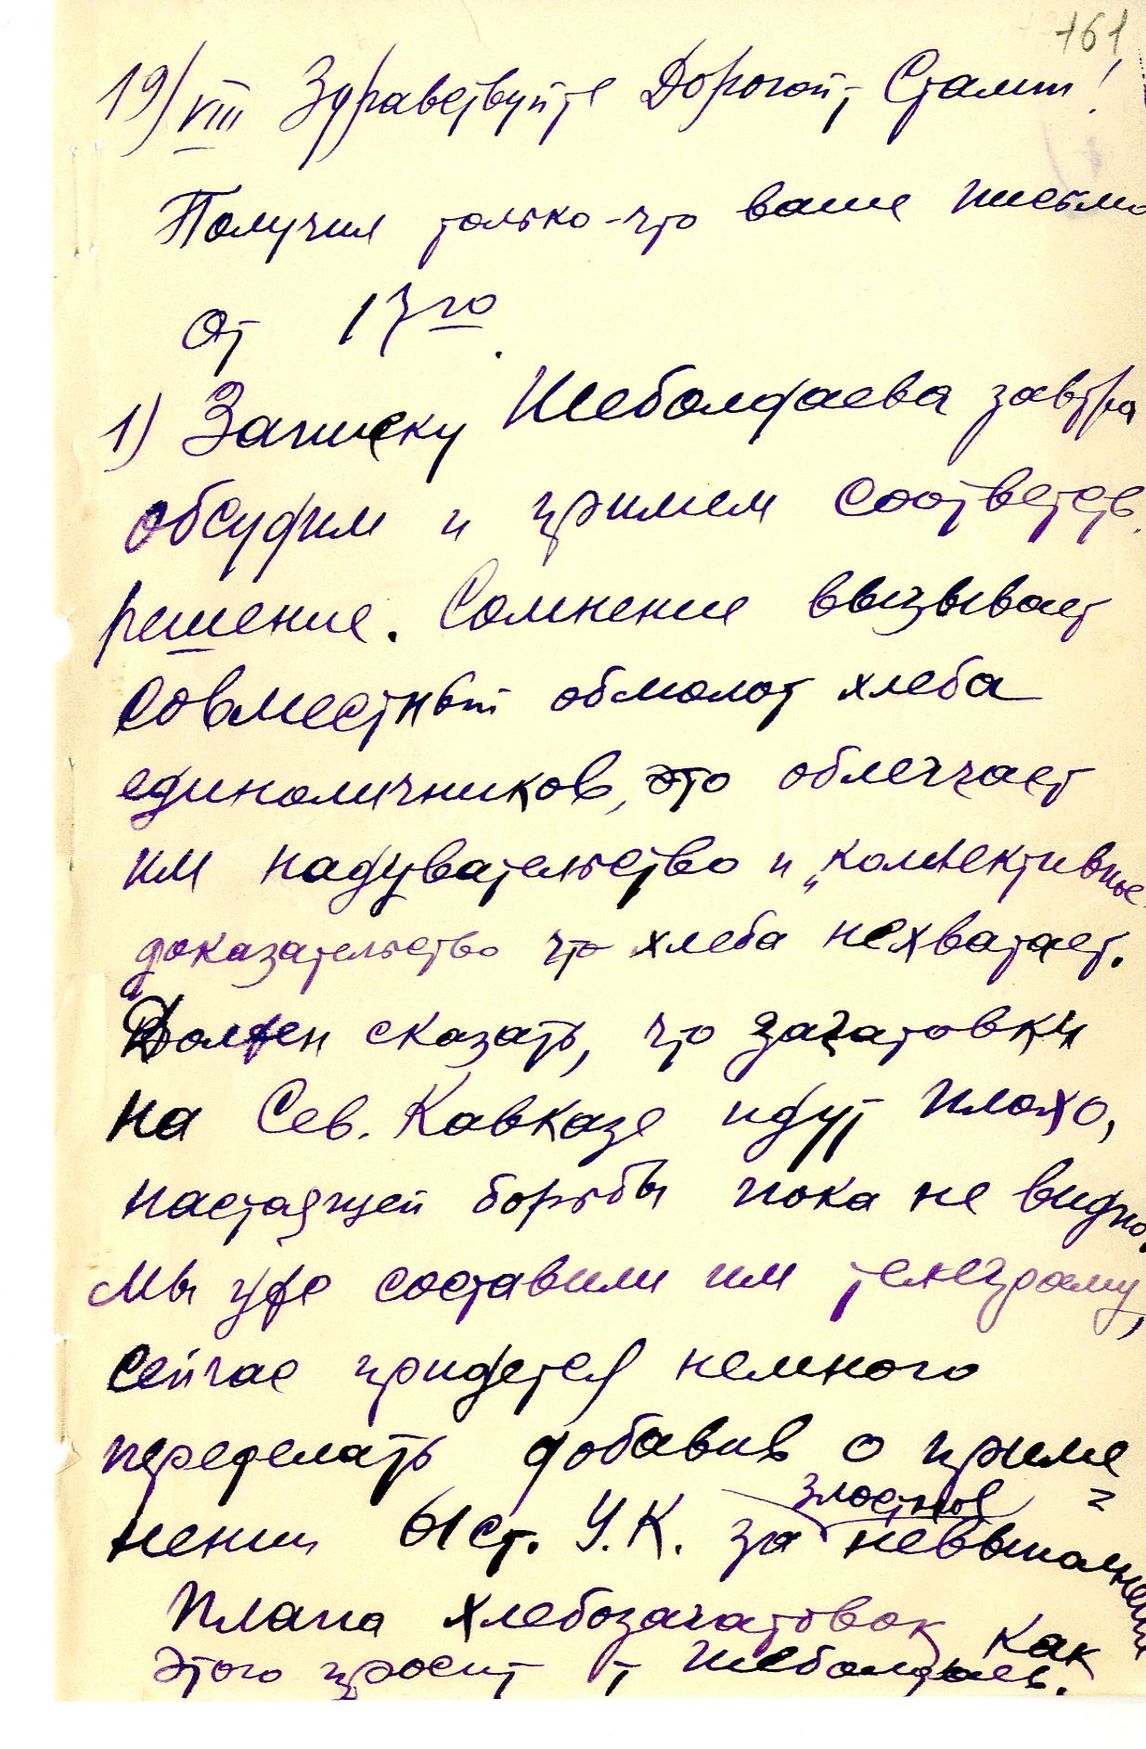 161
19/VIII Здравствуйте Дорогой т. Сталин!
Получил только-что ваше письмо
от 17го.
1) Записку Шеболдаева завтра
обсудим и примем соответств.
решение. Сомнение вызывает
совместный обмолот хлеба
единоличников, это облегчает
им надувательство и „коллективные
доказательство что хлеба нехватает.
Должен сказать, что заготовки
на Сев. Кавказе идут плохо,
настоящей борьбы пока не видно.
Мы уже составили им телеграму,
сейчас придется немного
переделать добавив о приме=
злостное
нении 61 ст. У.К. за невыполнение
плана хлебозаготовок как
этого просит т Шеболдаев.